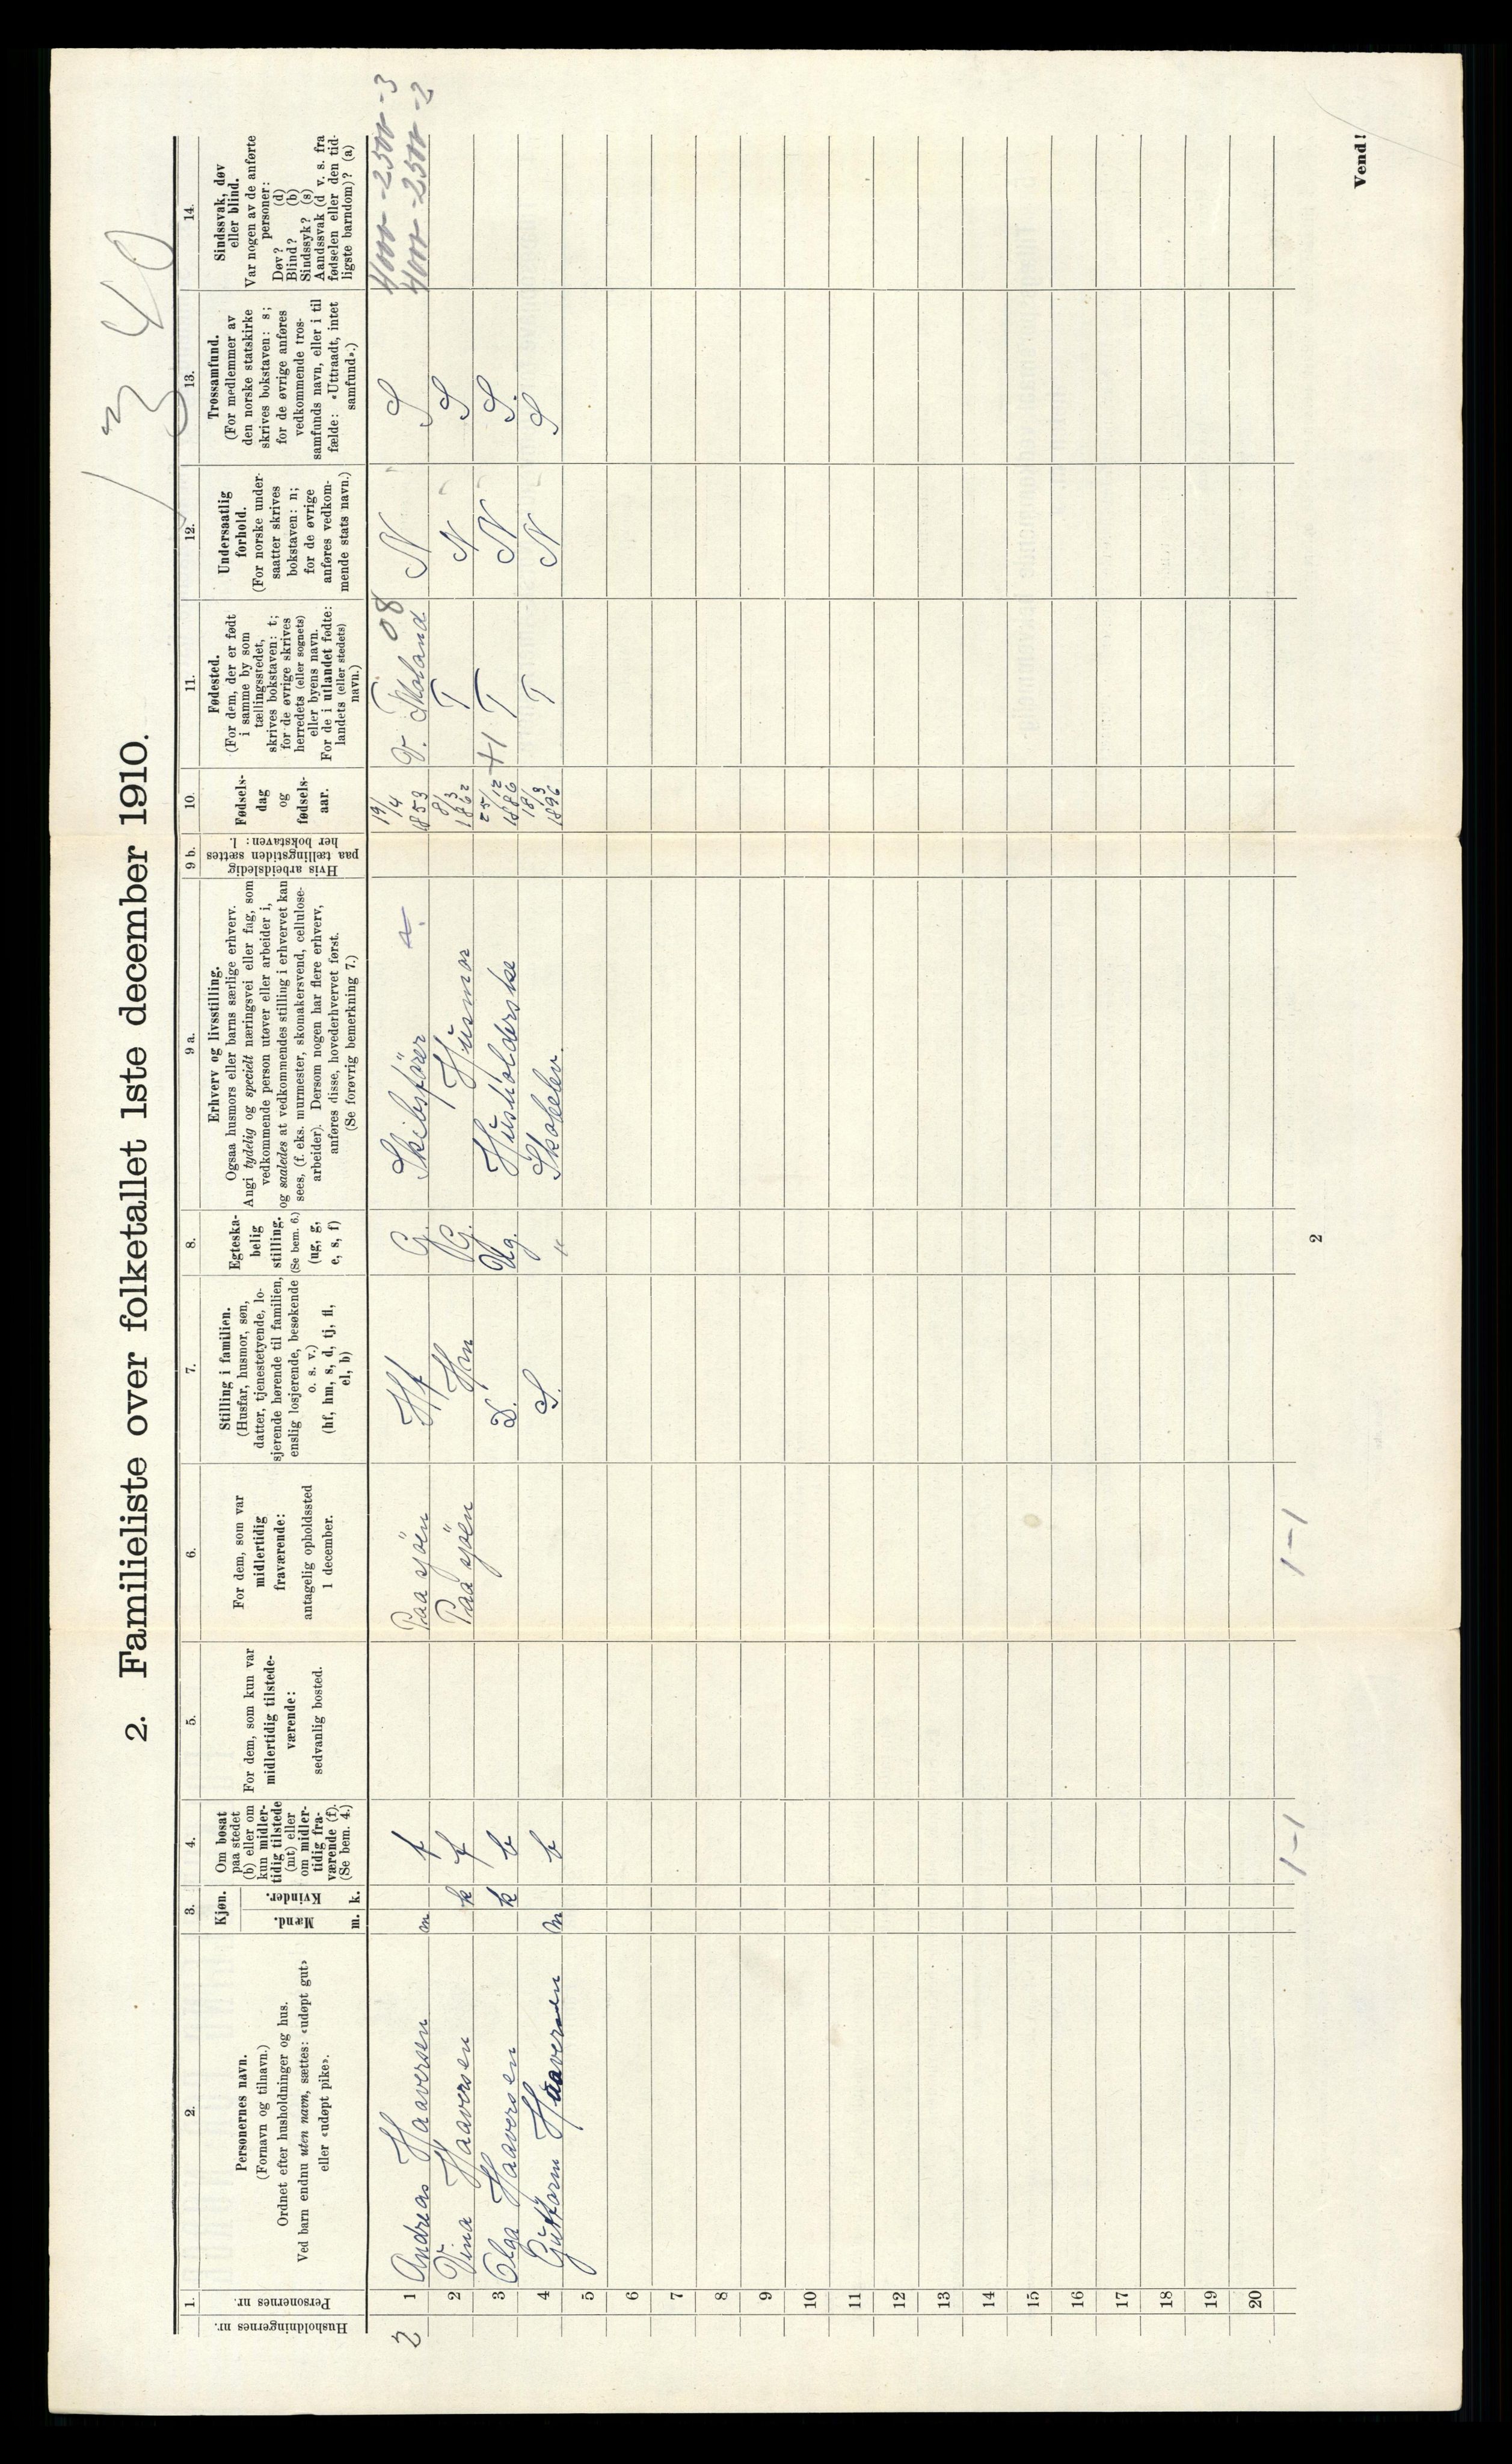 1340
2. Familieliste over folketallet 1ste december 1910.
1.
Husholdningernes nr.
Personernes nr.
2.
Personernes navn.
(Fornavn og tilnavn.)
Ordnet efter husholdninger og hus.
Ved barn endnu uten navn, sættes: «udøpt gut»
eller «udøpt pike».
3.
Kjøn.
Mænd.
Kvinder.
m. k.
4.
Om bosat
paa stedet
(b) eller om
kun midler-
tidig tilstede
(mt) eller
om midler-
tidig fra-
værende (f).
(Se bem. 4.)
5.
For dem, som kun var
midlertidig tilstede-
værende:
sedvanlig bosted.
6.
For dem, som var
midlertidig
fraværende:
antagelig opholdssted
1 december.
7.
Stilling i familien.
(Husfar, husmor, søn,
datter, tjenestetyende, lo-
sjerende hørende til familien,
enslig losjerende, besøkende
o. s. v.)
(hf, hm, s, d, tj, fl,
el, b)
8.
Egteska-
belig
stilling.
(Se bem. 6.)
(ug, g,
e, s, f)
9 a.
Erhverv og livsstilling.
Ogsaa husmors eller barns særlige erhverv.
Angi tydelig og specielt næringsvei eller fag, som
vedkommende person utøver eller arbeider i,
og saaledes at vedkommendes stilling i erhvervet kan
sees, (f. eks. murmester, skomakersvend, cellulose-
arbeider). Dersom nogen har flere erhverv,
anføres disse, hovederhvervet først.
(Se forøvrig bemerkning 7.)
9 b.
Hvis arbeidsledig
paa tællingstiden sættes
her bokstaven: l.
10.
Fødsels-
dag
og
fødsels-
aar.
11.
Fødested.
(For dem, der er født
i samme by som
tællingsstedet,
skrives bokstaven: t;
for de øvrige skrives
herredets (eller sognets)
eller byens navn.
For de i utlandet fødte:
landets (eller stedets)
navn.)
12.
Undersaatlig
forhold.
(For norske under-
saatter skrives
bokstaven: n;
for de øvrige
anføres vedkom-
mende stats navn.)
13.
Trossamfund.
(For medlemmer av
den norske statskirke
skrives bokstaven: s;
for de øvrige anføres
vedkommende tros-
samfunds navn, eller i til
fælde: «Uttraadt, intet
samfund».)
14.
Sindssvak, døv
eller blind.
Var nogen av de anførte
personer:
Døv? (d)
Blind? (b)
Sindssyk? (s)
Aandssvak (d v. s. fra
fødselen eller den tid-
ligste barndom)? (a)
2 1 Andreas Haaversen m f Paa sjöen Hf G. Skibsförer 19/4 1853 V. Moland 08 N S 4000 -2500 -3
4000 -2500 -2
2 Vina Haaversen k f Paa sjöen Hm G. Husmor 8/3 1862 T N S
3 Olga Haaversen k b D. Ug. Husholderske 25/12 1886 T N S.
4 Guttorm Haaversen m b S. " Skoleelev. 18/3 1896 T N S
5
6
7
8
9
10
11
12
13
14
15
16
17
18
19
20
1-1 1-1
2
Vend!